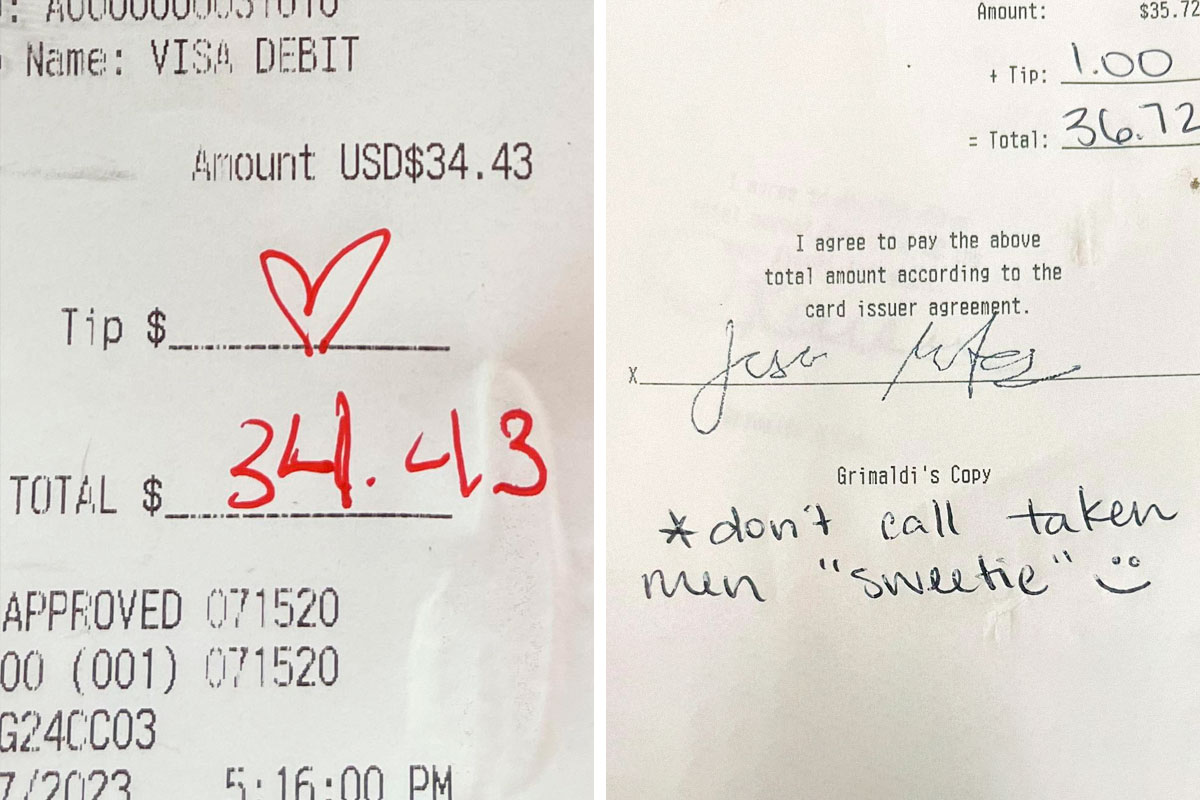 Name: VISA DEBIT
Amount USD$34.43
Tip $
TOTAL $ 34.43
APPROVED 071520
00 (001) 071520
G24CC03
7/2023 5:16:00 PM
Amount: $35.72
+ Tip: 1.00
= Total: 36.72
I agree to pay the above
total amount according to the
card issuer agreement.
X
Grimaldi's Copy
*don't call taken
men "sweetie"